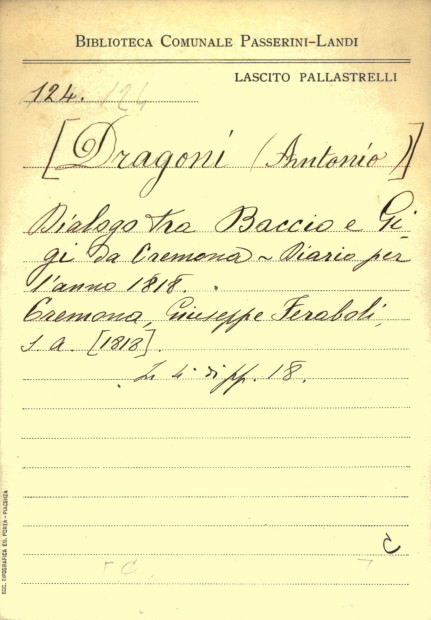 BIBLIOTECA COMUNALE PASSERINI-LANDI
LASCITO PALLASTRELLI
124. 124
[Dragoni (Antonio)]
Dialogo tra Baccio e Gi
gi da Cremona ~ Diario per
l'anno 1818.
Cremona, Giuseppe Feraboli,
s. a. [1818].
In 4° di pp. 18.
C
C
SOC. TIPOGRAFICA ED. PORTA - PIACENZA